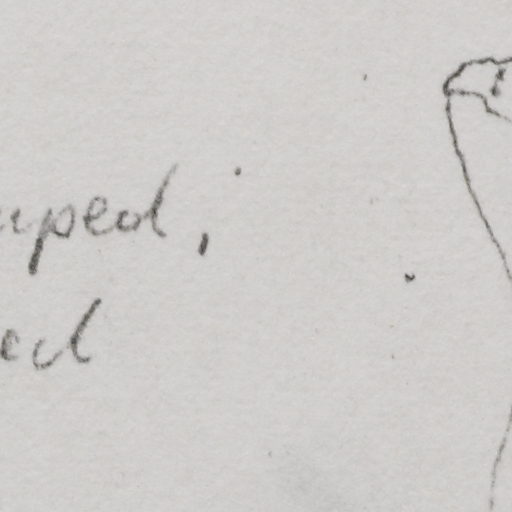 uped,
ed